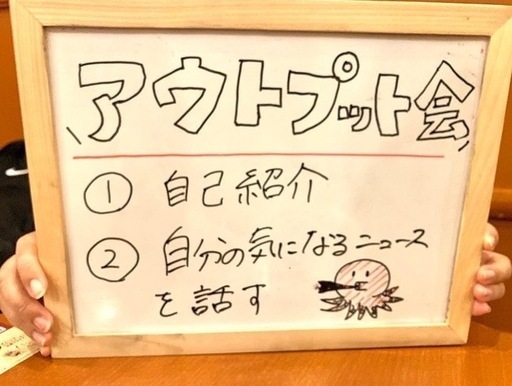 アウトプット会
① 自己紹介
② 自分の気になるニュース
を話す